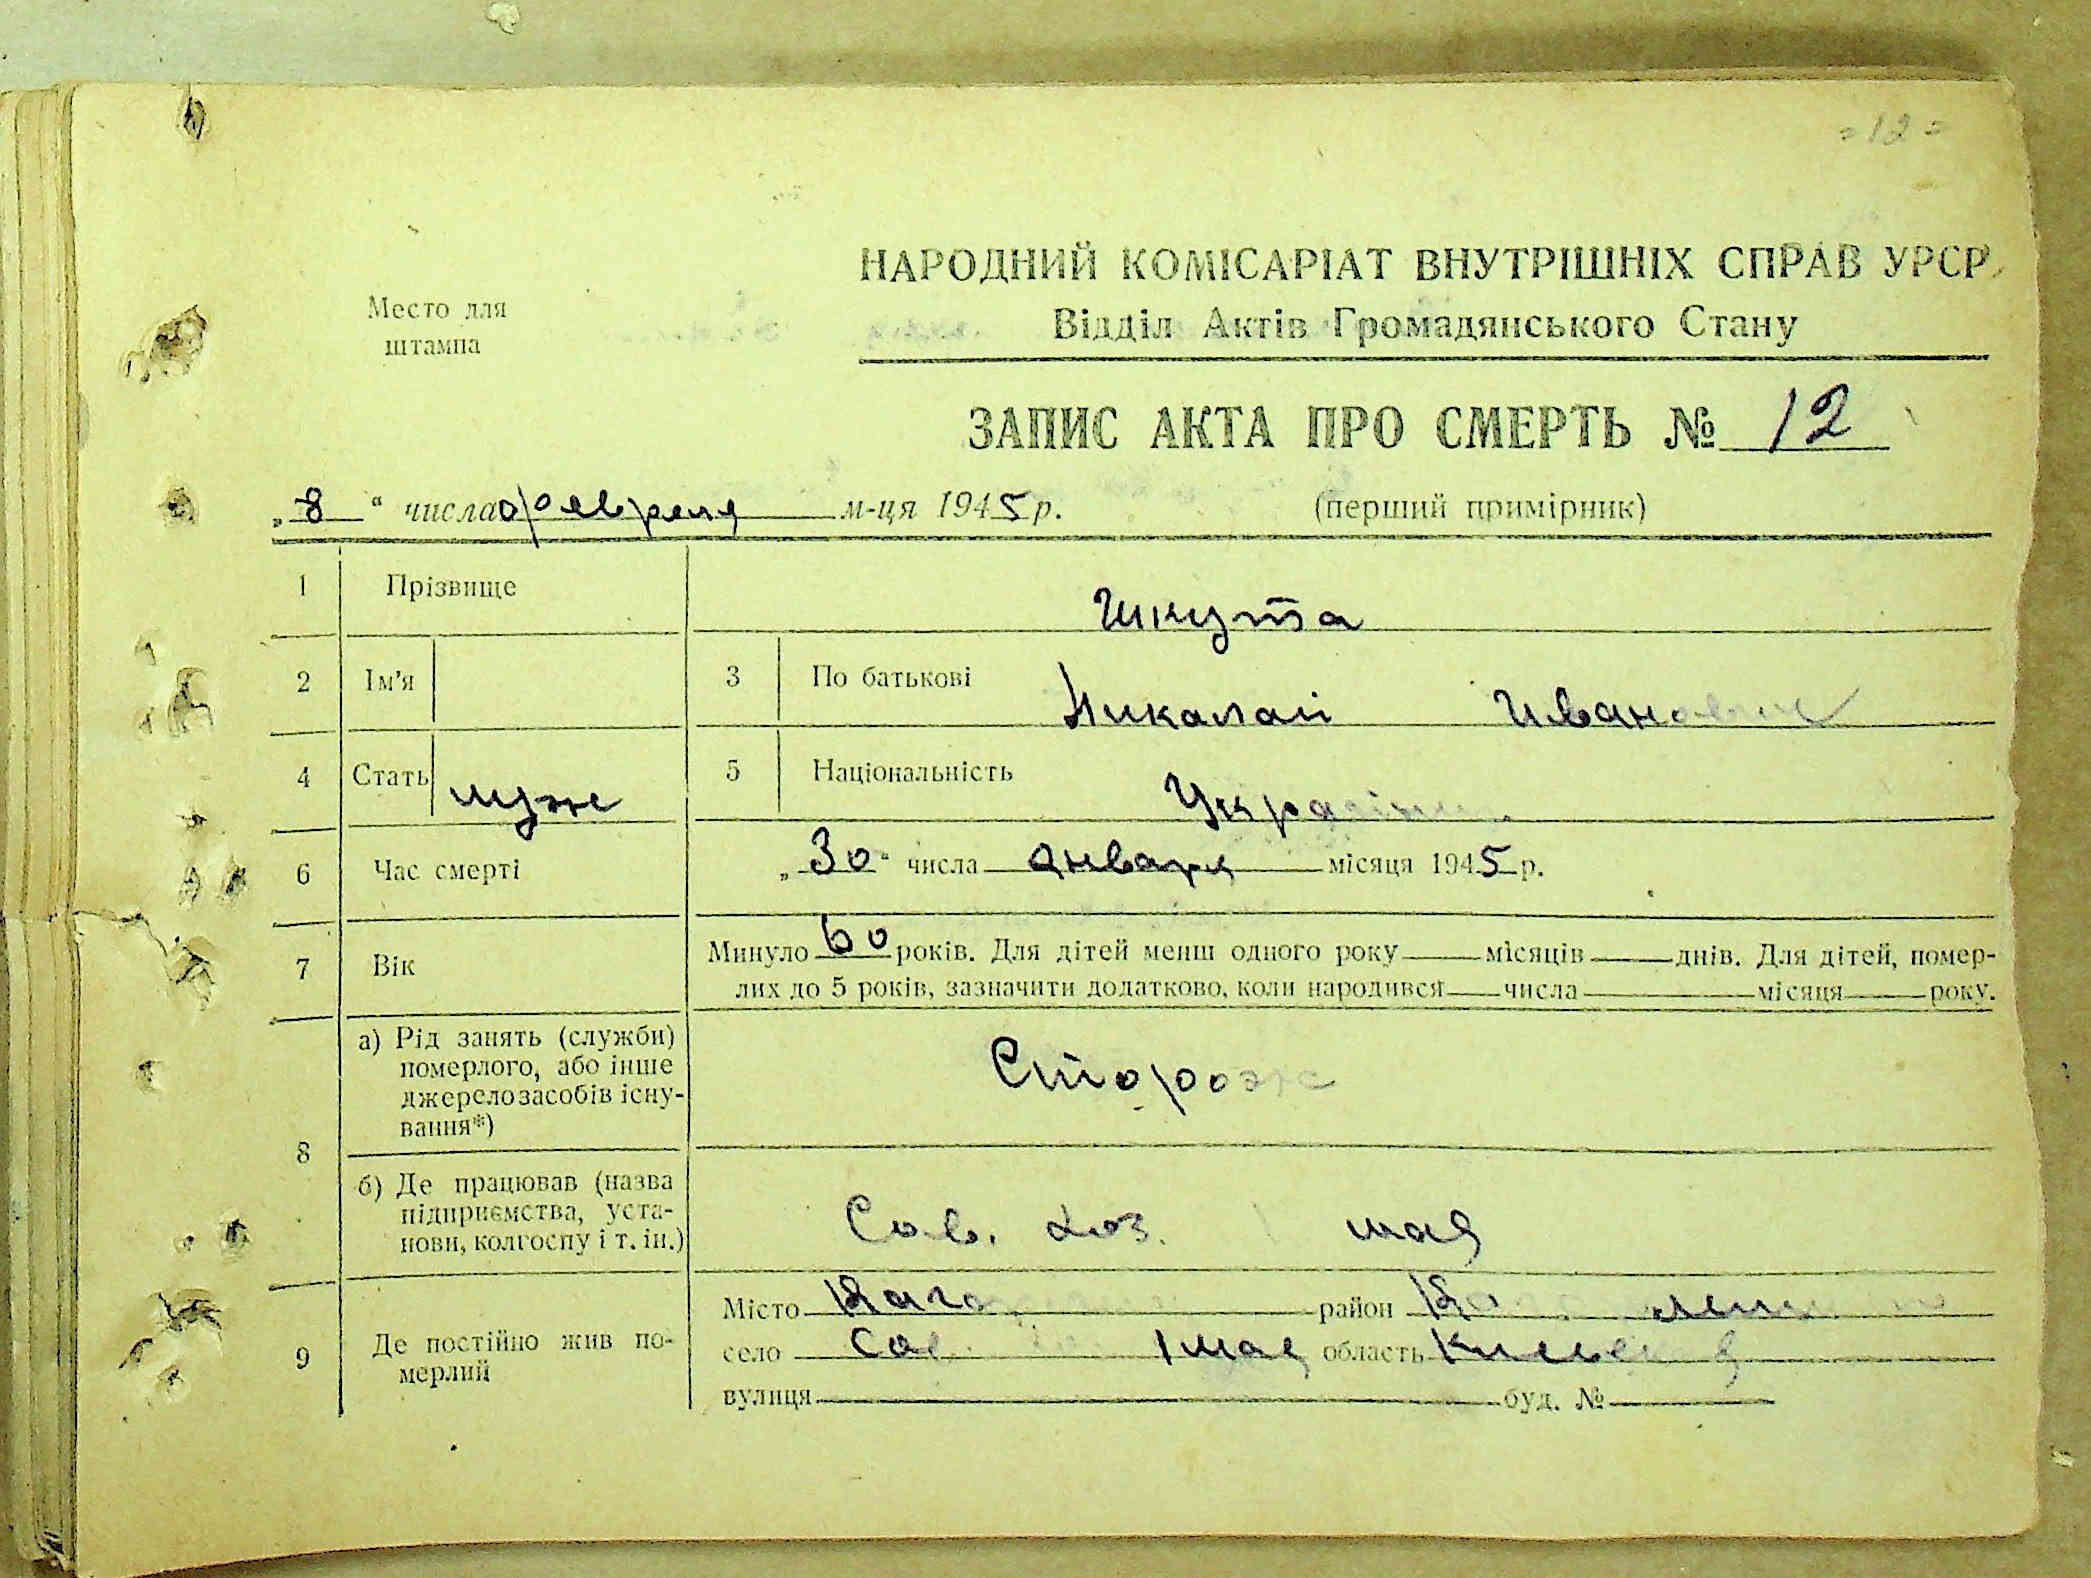 = 12 =
НАРОДНИЙ КОМІСАРІАТ ВНУТРІШНІХ СПРАВ УРСР
Место для
штампа
Відділ Актів Громадянського Стану
ЗАПИС АКТА ПРО СМЕРТЬ № 12
„8" числа февреля м-ця 1945 р. (перший примірник)
1 Прізвище Шкута
2 Ім'я 3 По батькові Николай Иванович
4 Стать муж 5 Національність
6 Час смерті „30" числа января місяця 1945 р.
7 Вік Минуло 60 років. Для дітей менш одного року місяців днів. Для дітей, помер-
лих до 5 років, зазначити додатково, коли народився числа місяця року.
8 а) Рід занять (служби)
померлого, або інше
джерело засобів існу-
вання*) Сторож
б) Де працював (назва
підприємства, уста-
нови, колгоспу і т. ін.) Сов. хоз. мая
9 Де постійно жив по-
мерлий
Місто район
село 1 мая область
вулиця буд. №